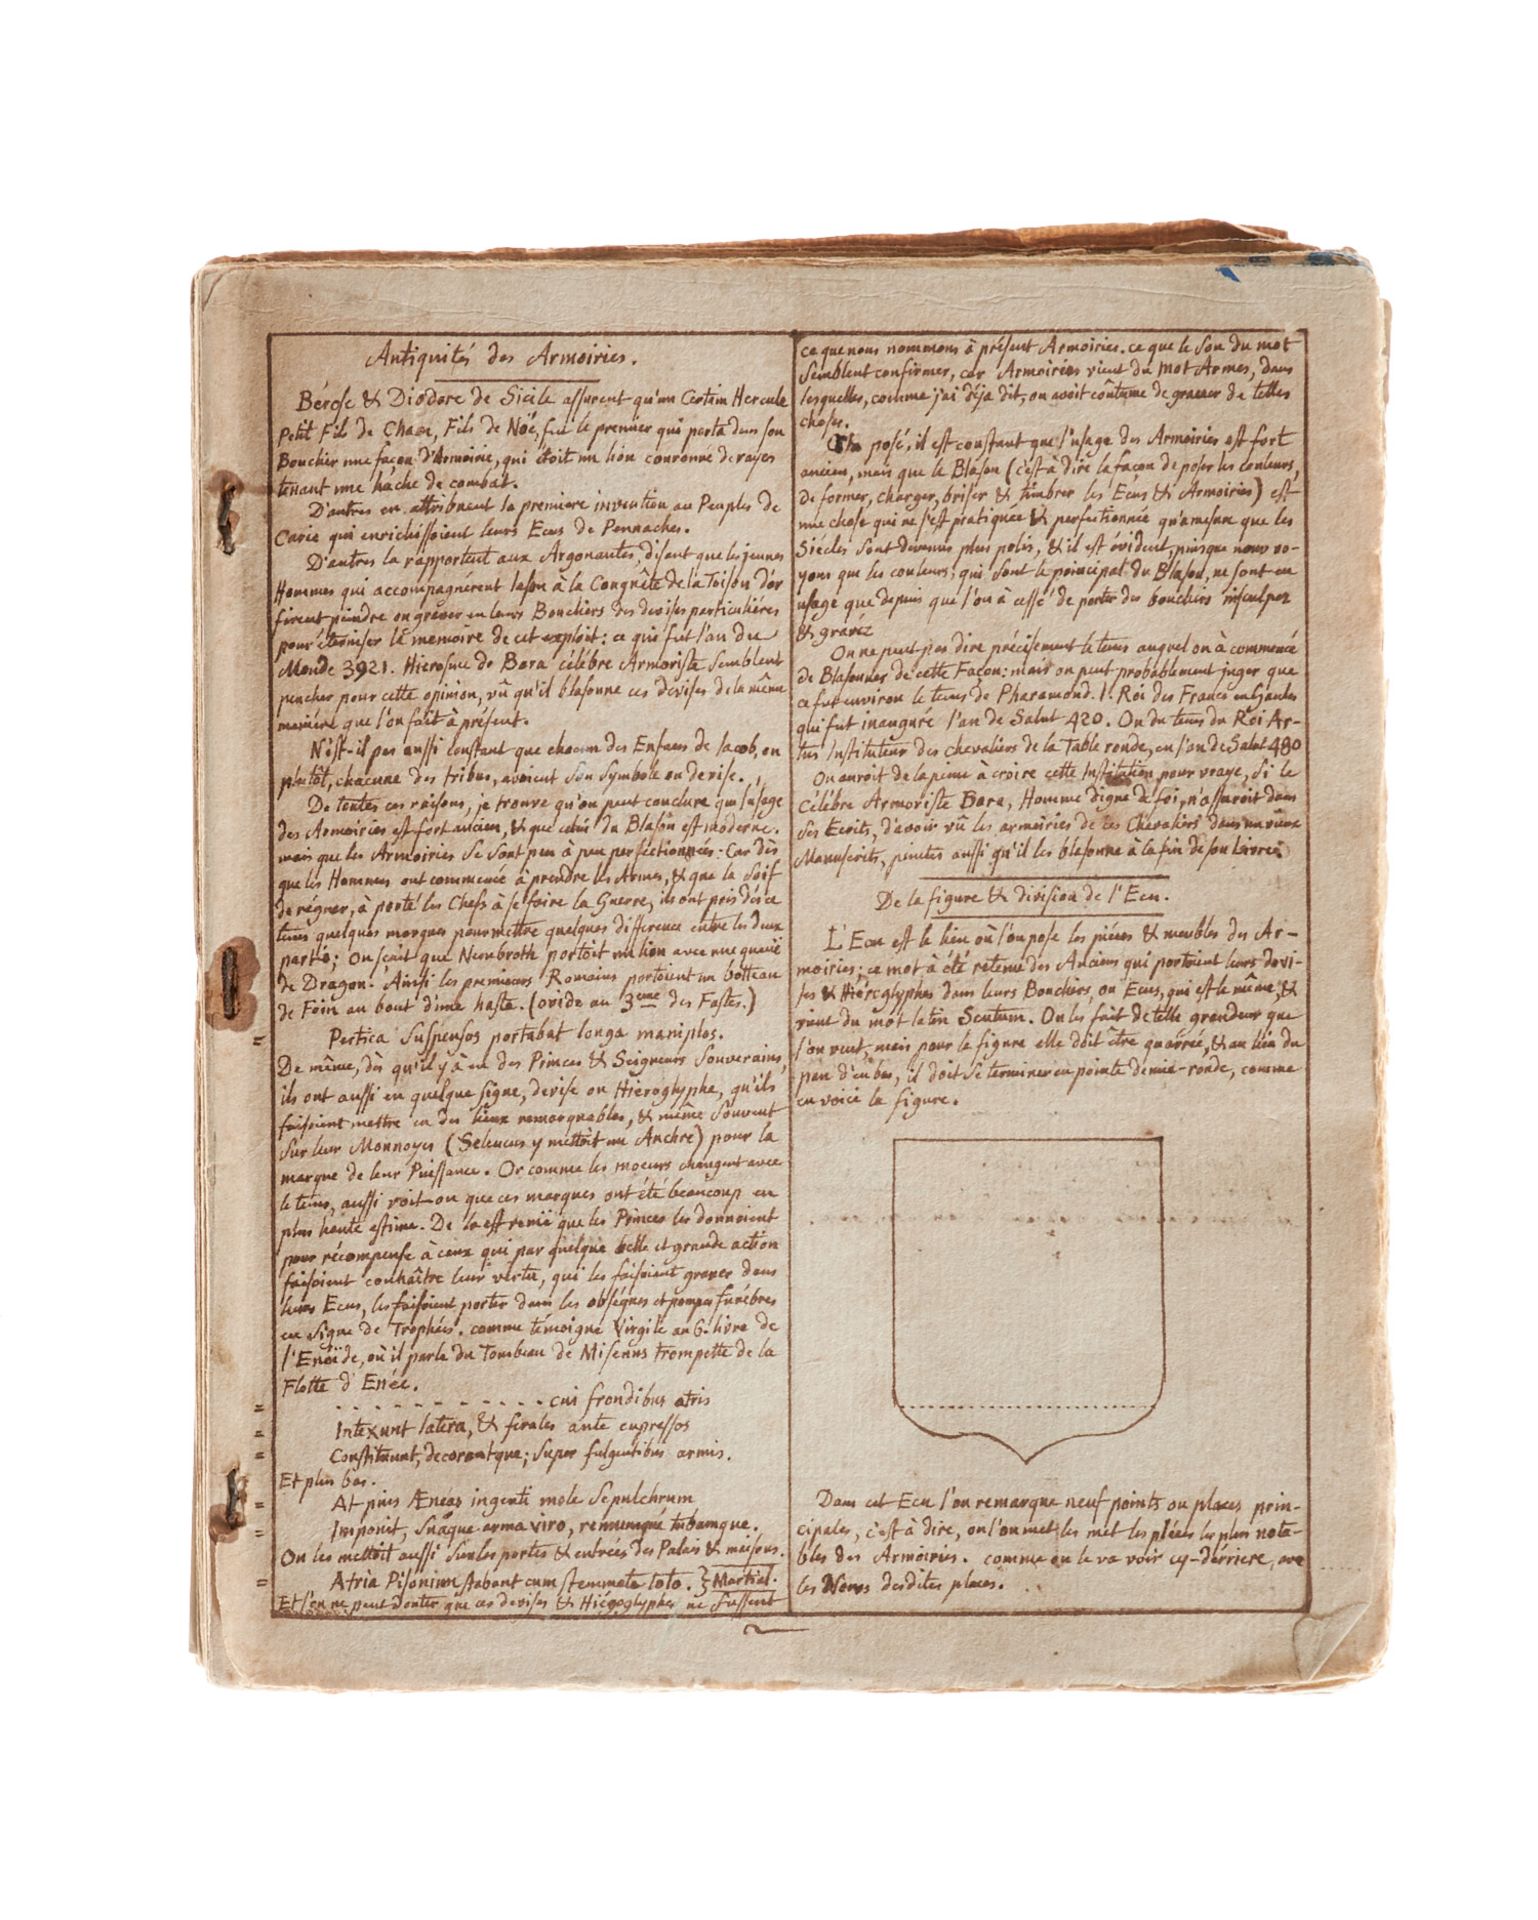 Antiquités des Armoiries.
Bérose & Diodore de Sicile assurent qu'un Certain Hercule
Petit Fils de Cham, Fils de Nöé, fut le premier qui porta dans son
Bouclier une façon d'Armoirie, qui étoit un lion couronné de rayes
tenant une hâche de combat.
D'autres en attribuent la premiere invention au Peuples de
Carie qui enrichissoient leurs Ecus de Pennaches.
D'autres la rapportent aux Argonautes, disent que les jeunes
Hommes qui accompagnérent Iason à la Conquête de la Toison d'or
firent peindre ou graver en leurs Boucliers des devises particuliéres
pour éterniser le memoire de cet exploit: ce qui fut l'an du
Monde 3921. Hierosme de Bara célébre Armoriste semblent
pencher pour cette opinion, vû qu'il blasonne ces devises de la même
maniére que l'on fait à présent.
N'est-il pas aussi constant que chacun des Enfans de Iacob, ou
plutôt, chacune des tribus, avoient son symbole ou devise.
De toutes ces raisons, je trouve qu'on peut conclure que l'usage
des Armoiries est fort ancien, & que celui du Blason est moderne.
mais que les Armoiries se sont peu à peu perfectionnées: Car dès
que les Hommes ont commencé à prendre les Armes, & que la soif
de régner, à porté les Chefs à se faire la Guerre, ils ont pris dès ce
tems quelques marques pour mettre quelques difference entre les deux
partis; On sçait que Nembroth portoit un lion avec une queuë
de Dragon. Ainsi les premiers Romains portoient un botteau
de Foin au bout d'une haste. (ovide au 3eme des Fastes.)
Pertica suspensos portabat longa maniplos.
De même, dès qu'il y à eu des Princes & Seigneurs Souverains,
ils ont aussi eu quelque signe, devise ou Hieroglyphe, qu'ils
faisoient mettre en des lieux remarquables, & même souvent
sur leur Monnoyes (Seleucus y mettoit un Anchre) pour la
marque de leur Puissance. Or comme les moeurs changent avec
le tems, aussi voit-on que ces marques ont été beaucoup en
plus haute estime. De la est venuë que les Princes les donnoient
pour récompense à ceux qui par quelque belle et grande action
faisoient conhaître leur vertu, qui les faisoient graver dans
leurs Ecus, les faisoient porter dans les obséques et pompes funébres
en signe de Trophées. comme témoigne Virgile au 6.e livre de
l'Eneïde, où il parle du Tombeau de Misenus trompette de la
Flotte d'Enée.
- - - - - - - - - - - cui frondibus atris
Intexunt latera, & ferales ante cupressos
Constituunt, decorantque; super fulgentibus armis.
Et plus bas.
At pius Æneas ingenti mole sepulchrum
Imponit, suaque arma viro, remumqué tubamque.
On les mettoit aussi sur les portes & entrées des Palais & maisons.
Atria Pisonium stabant cum stemmate toto. } Martial.
Et l'on ne peut douter que ces devises & Hiéroglyphes ne fussent
ce que nous nommons à présent Armoiries. ce que le son du mot
semblent confirmer, car Armoiries vient du mot Armes, dans
lesquelles, comme j'ai déja dit, on avoit côutume de graver de telles
choses.
posé, il est constant que l'usage des Armoiries est fort
ancien, mais que le Blason (c'est à dire la façon de poser les couleurs,
de former, charger, briser & timbrer les Ecus & Armoiries) est
une chose qui ne s'est pratiquée & perfectionnée qu'amesure que les
Siécles sont devenus plus polis, & il est évident, puisque nous vo-
yons que les couleurs, qui sont le principal du Blason, ne sont en
usage que depuis que l'on à cessé de porter des boucliers insculpez
& gravéz
On ne peut pas dire précisement le tems auquel on à commencé
de Blasonner de cette Façon: mais on peut probablement juger que
ce fut environ le tems de Pharamond. I. Roi des Francs en Gaules
qui fut inauguré l'an de Salut 420. Ou du tems du Roi Ar-
tus Instituteur des chevaliers de la Table ronde, en l'an de Salut 480
On auroit de la peine à croire cette Institution pour vraye, si le
Célébre Armoriste Bara, Homme digne de foi, n'assuroit dans
ses Ecrits, d'avoir vû les armoiries de ces Chevaliers dans un vieux
Manuscrits, peintes aussi qu'il les blasonne à la fin de son Livre.
De la figure & division de l'Ecu.
L'Ecu est le lieu où l'on pose les piéces & meubles des Ar-
moiries; ce mot à été retenu des Anciens qui portoient leurs devi-
ses & Hiéroglyphes dans leurs Boucliers, ou Ecus, qui est le même, &
vient du mot latin Scutum. On les fait de telle grandeur que
l'on veut, mais pour la figure elle doit être quarrée, & au lieu du
pan d'en bas, il doit se terminer en pointe demie-ronde, comme
en voici la figure.
Dans cet Ecu l'on remarque neuf points ou places prin-
cipales, c'est à dire, ou l'on met les met les piéces les plus nota-
bles des Armoiries. comme on le va voir cy-dérriere, avec
les Noms desdites places.